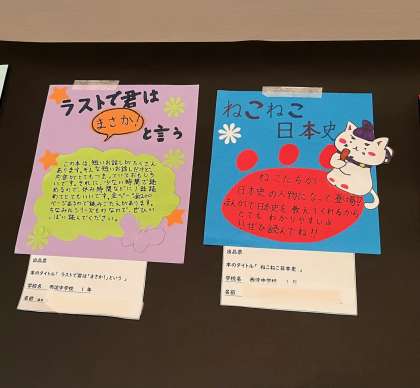 ラストで君は
まさか!
と言う
この本は、短いお話しがたくさん
あります。そんな短いお話しだけど、
めてとてもいいです。全ページ200
ページあるので読みごたえがあります。
ちなみにシリーズものなので、ぜひい
っぱい読んでください。
出品票
本のタイトル「 ラストで君は「まさか!」という 」
学校名
中学校 1 年
名前
ねこねこ
日本史
ねこたちが
日本史の人物になって登場!
まんがで日本史を教えてくれるから
とてもわかりやすいよ
ぜひ読んでね!!
出品票
本のタイトル「 ねこねこ日本史 」
学校名
中学校 1
名前